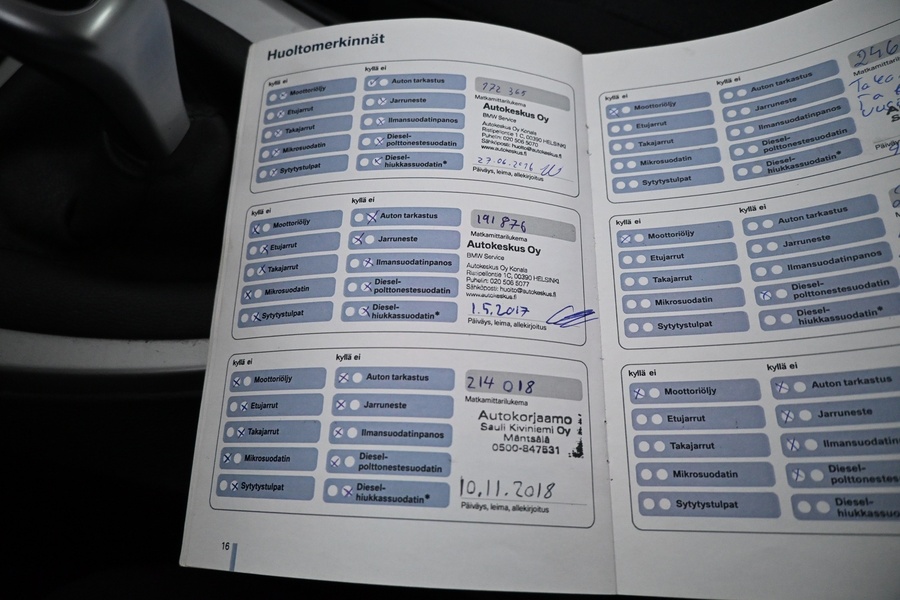 Huoltomerkinnät
kyllä ei
kyllä ei
Moottoriöljy
Etujarrut
Takajarrut
Mikrosuodatin
Sytytystulpat
Auton tarkastus
Jarruneste
Ilmansuodatinpanos
Diesel-
polttonestesuodatin
Diesel-
hiukkassuodatin*
172 365
Matkamittarilukema
Autokeskus Oy
BMW Service
Autokeskus Oy Konala
Ristipellontie 1 C, 00390 HELSINKI
Puhelin: 020 506 5070
Sähköposti: huolto@autokeskus.fi
www.autokeskus.fi
27.06.2016
Päiväys, leima, allekirjoitus
kyllä ei
kyllä ei
Moottoriöljy
Etujarrut
Takajarrut
Mikrosuodatin
Sytytystulpat
Auton tarkastus
Jarruneste
Ilmansuodatinpanos
Diesel-
polttonestesuodatin
Diesel-
hiukkassuodatin*
191 876
Matkamittarilukema
Autokeskus Oy
BMW Service
Autokeskus Oy Konala
Ristipellontie 1 C, 00390 HELSINKI
Puhelin: 020 506 5077
Sähköposti: huolto@autokeskus.fi
www.autokeskus.fi
1.5.2017
Päiväys, leima, allekirjoitus
kyllä ei
kyllä ei
Moottoriöljy
Etujarrut
Takajarrut
Mikrosuodatin
Sytytystulpat
Auton tarkastus
Jarruneste
Ilmansuodatinpanos
Diesel-
polttonestesuodatin
Diesel-
hiukkassuodatin*
214 018
Matkamittarilukema
Autokorjaamo
Sauli Kiviniemi Oy
Mäntsälä
0500-847631
10.11.2018
Päiväys, leima, allekirjoitus
16
kyllä ei
kyllä ei
Moottoriöljy
Etujarrut
Takajarrut
Mikrosuodatin
Sytytystulpat
Auton tarkastus
Jarruneste
Ilmansuodatinpanos
Diesel-
polttonestesuodatin
Diesel-
hiukkassuodatin*
246
kyllä ei
kyllä ei
Moottoriöljy
Etujarrut
Takajarrut
Mikrosuodatin
Sytytystulpat
Auton tarkastus
Jarruneste
Ilmansuodatinpanos
Diesel-
polttonestesuodatin
Diesel-
hiukkassuodatin*
kyllä ei
kyllä ei
Moottoriöljy
Etujarrut
Takajarrut
Mikrosuodatin
Sytytystulpat
Auton tarkastus
Jarruneste
Ilmansuodatin
Diesel-
polttonestes
Diesel-
hiukkassuod